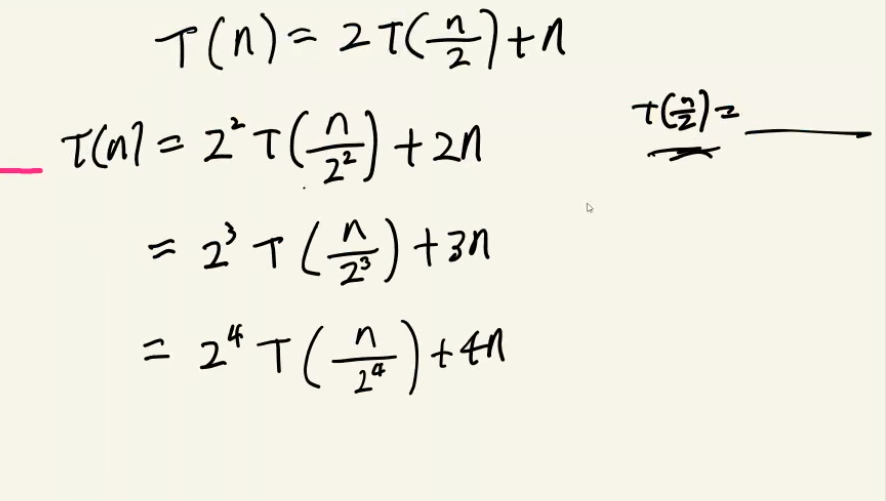 T(n) = 2T(n/2) + n
T(n/2) =
T(n) = 2² T(n/2²) + 2n
= 2³ T(n/2³) + 3n
= 2⁴ T(n/2⁴) + 4n